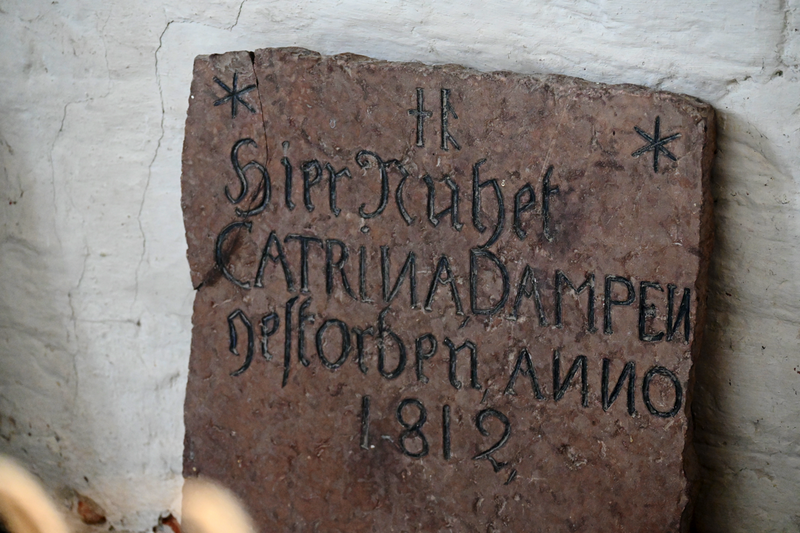 * ✝R *
Hier Ruhet
CATRINA DAMPEN
gestorben ANNO
1812